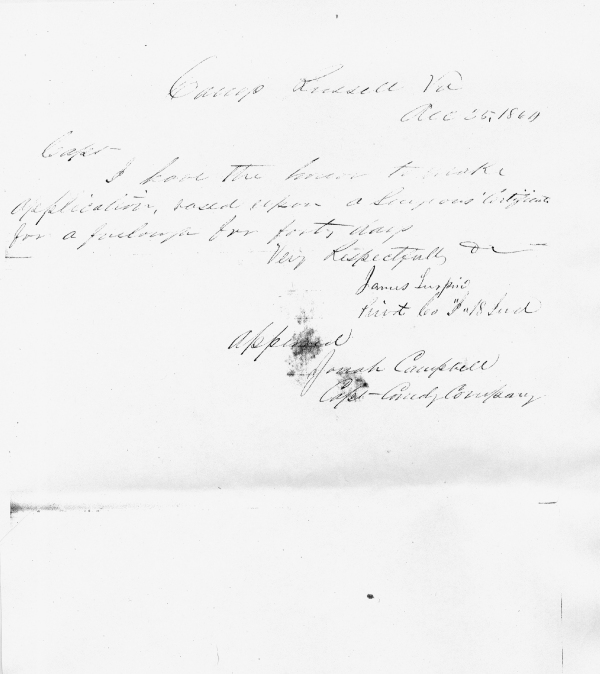 Camp Russell Va
Dec 25, 1864
Capt
I have the honor to make
application, based upon a Surgeons Certificate
for a furlough for forty days
Very Respectfully &c
James
Privt Co "I" 18 Ind
Approved
Jonah Campbell
Capt Comdg Company